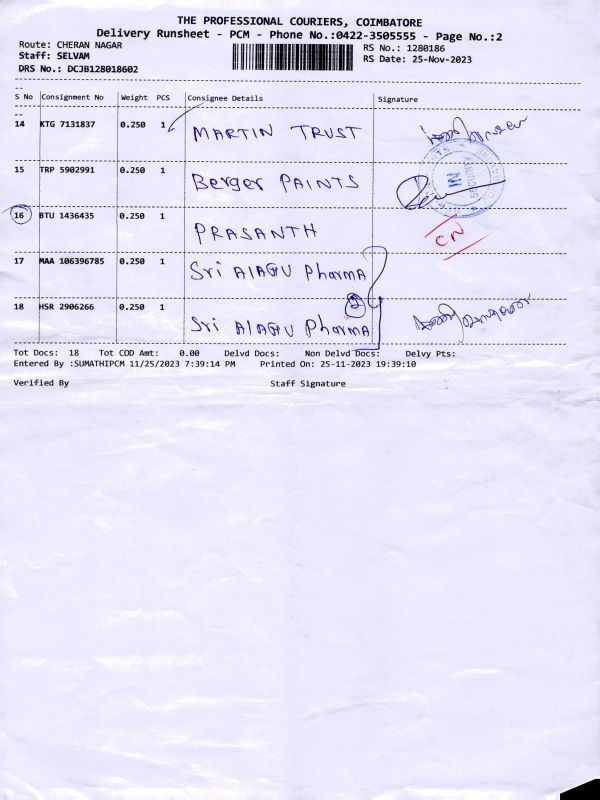 THE PROFESSIONAL COURIERS, COIMBATORE
Delivery Runsheet - PCM - Phone No.:0422-3505555 - Page No.:2
Route: CHERAN NAGAR
RS No.: 1280186
Staff: SELVAM
RS Date: 25-Nov-2023
DRS No.: DCJB128018602
--
S No Consignment No Weight PCS Consignee Details Signature
--
14 KTG 7131837 0.250 1 MARTIN TRUST
15 TRP 5902991 0.250 1 Berger PAINTS
16 BTU 1436435 0.250 1 PRASANTH CN
17 MAA 106396785 0.250 1 Sri AlAGU Pharma
2
18 HSR 2906266 0.250 1 Sri AlAGU Pharma
Tot Docs: 18 Tot COD Amt: 0.00 Delvd Docs: Non Delvd Docs: Delvy Pts:
Entered By :SUMATHIPCM 11/25/2023 7:39:14 PM Printed On: 25-11-2023 19:39:10
Verified By Staff Signature